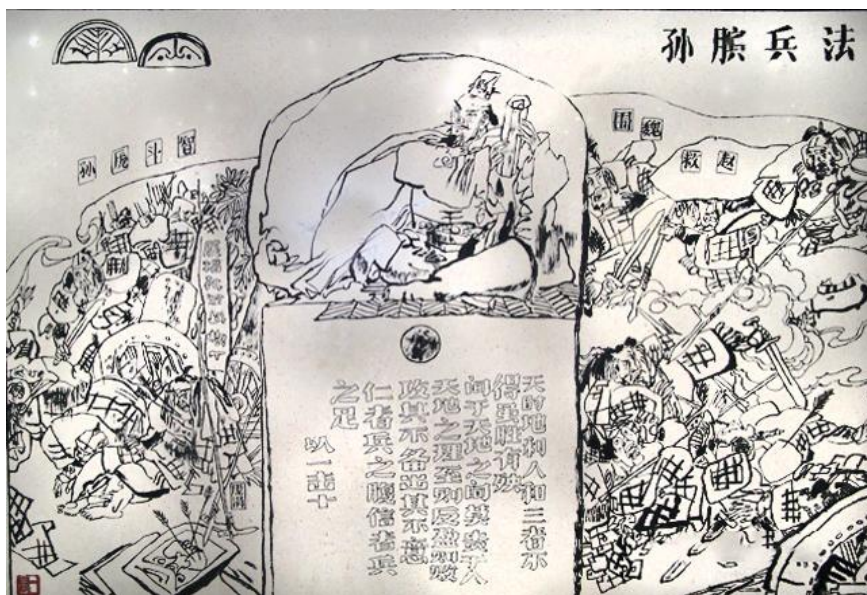 孙膑兵法
孙庞斗智
围魏
救赵
天时地利人和三者不
得虽胜有殃
间于天地之间莫贵于人
天地之理至则反盈则败
攻其不备出其不意
仁者兵之腹信者兵
之足
以一击十